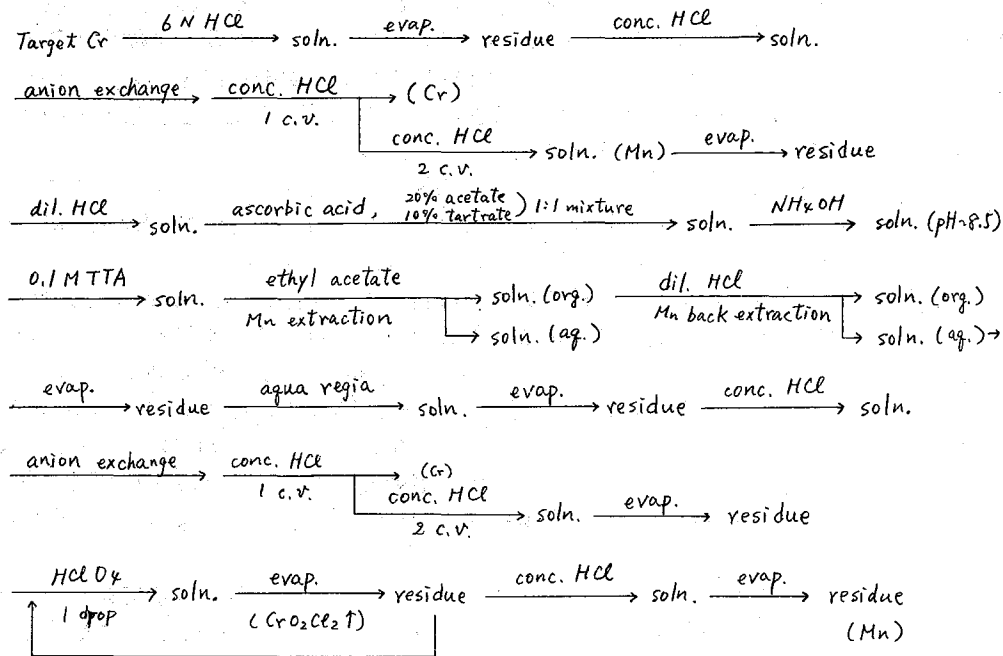 Target Cr 6 N HCl soln. evap. residue conc. HCl soln.
anion exchange conc. HCl 1 c.v. (Cr)
conc. HCl 2 c.v. soln. (Mn) evap. residue
dil. HCl soln. ascorbic acid, 20% acetate 10% tartrate ) 1:1 mixture soln. NH4OH soln. (pH~8.5)
0.1 M TTA soln. ethyl acetate Mn extraction soln. (org.) dil. HCl Mn back extraction soln. (org.)
soln. (aq.) soln. (aq.)
evap. residue aqua regia soln. evap. residue conc. HCl soln.
anion exchange conc. HCl 1 c.v. (Cr)
conc. HCl 2 c.v. soln. evap. residue
HClO4 1 drop soln. evap. (CrO2Cl2↑) residue conc. HCl soln. evap. residue
(Mn)